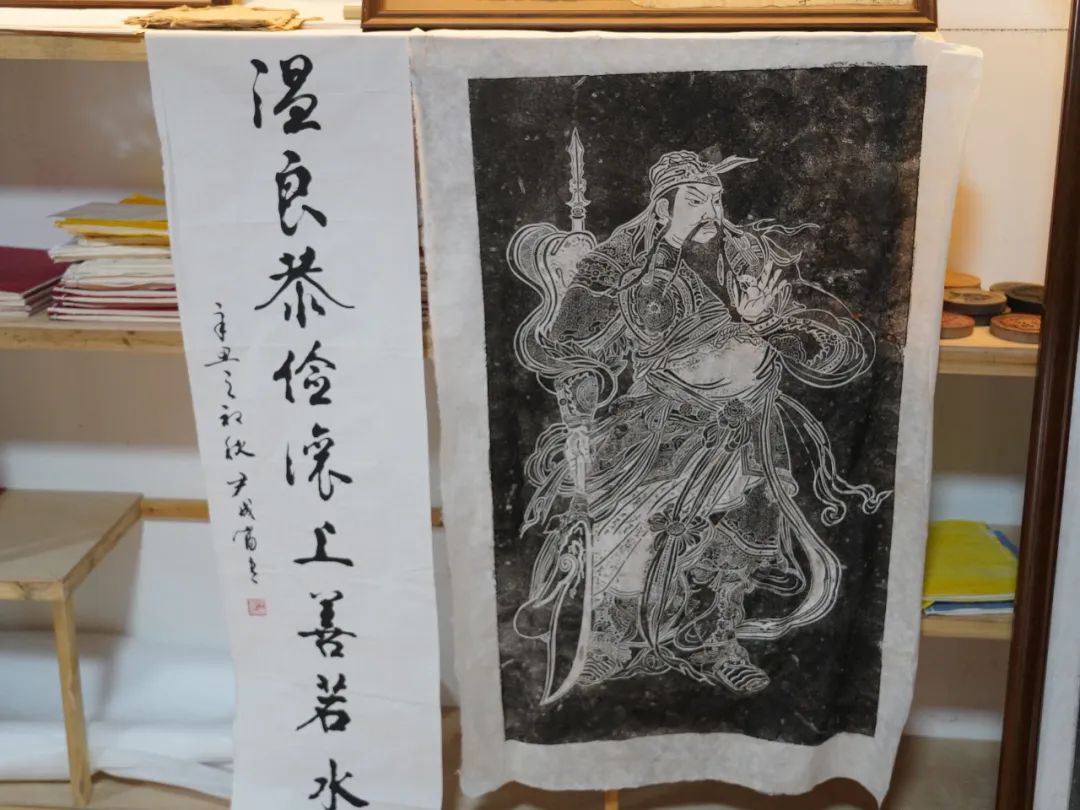 温良恭俭让上善若水
辛丑之初秋尹成